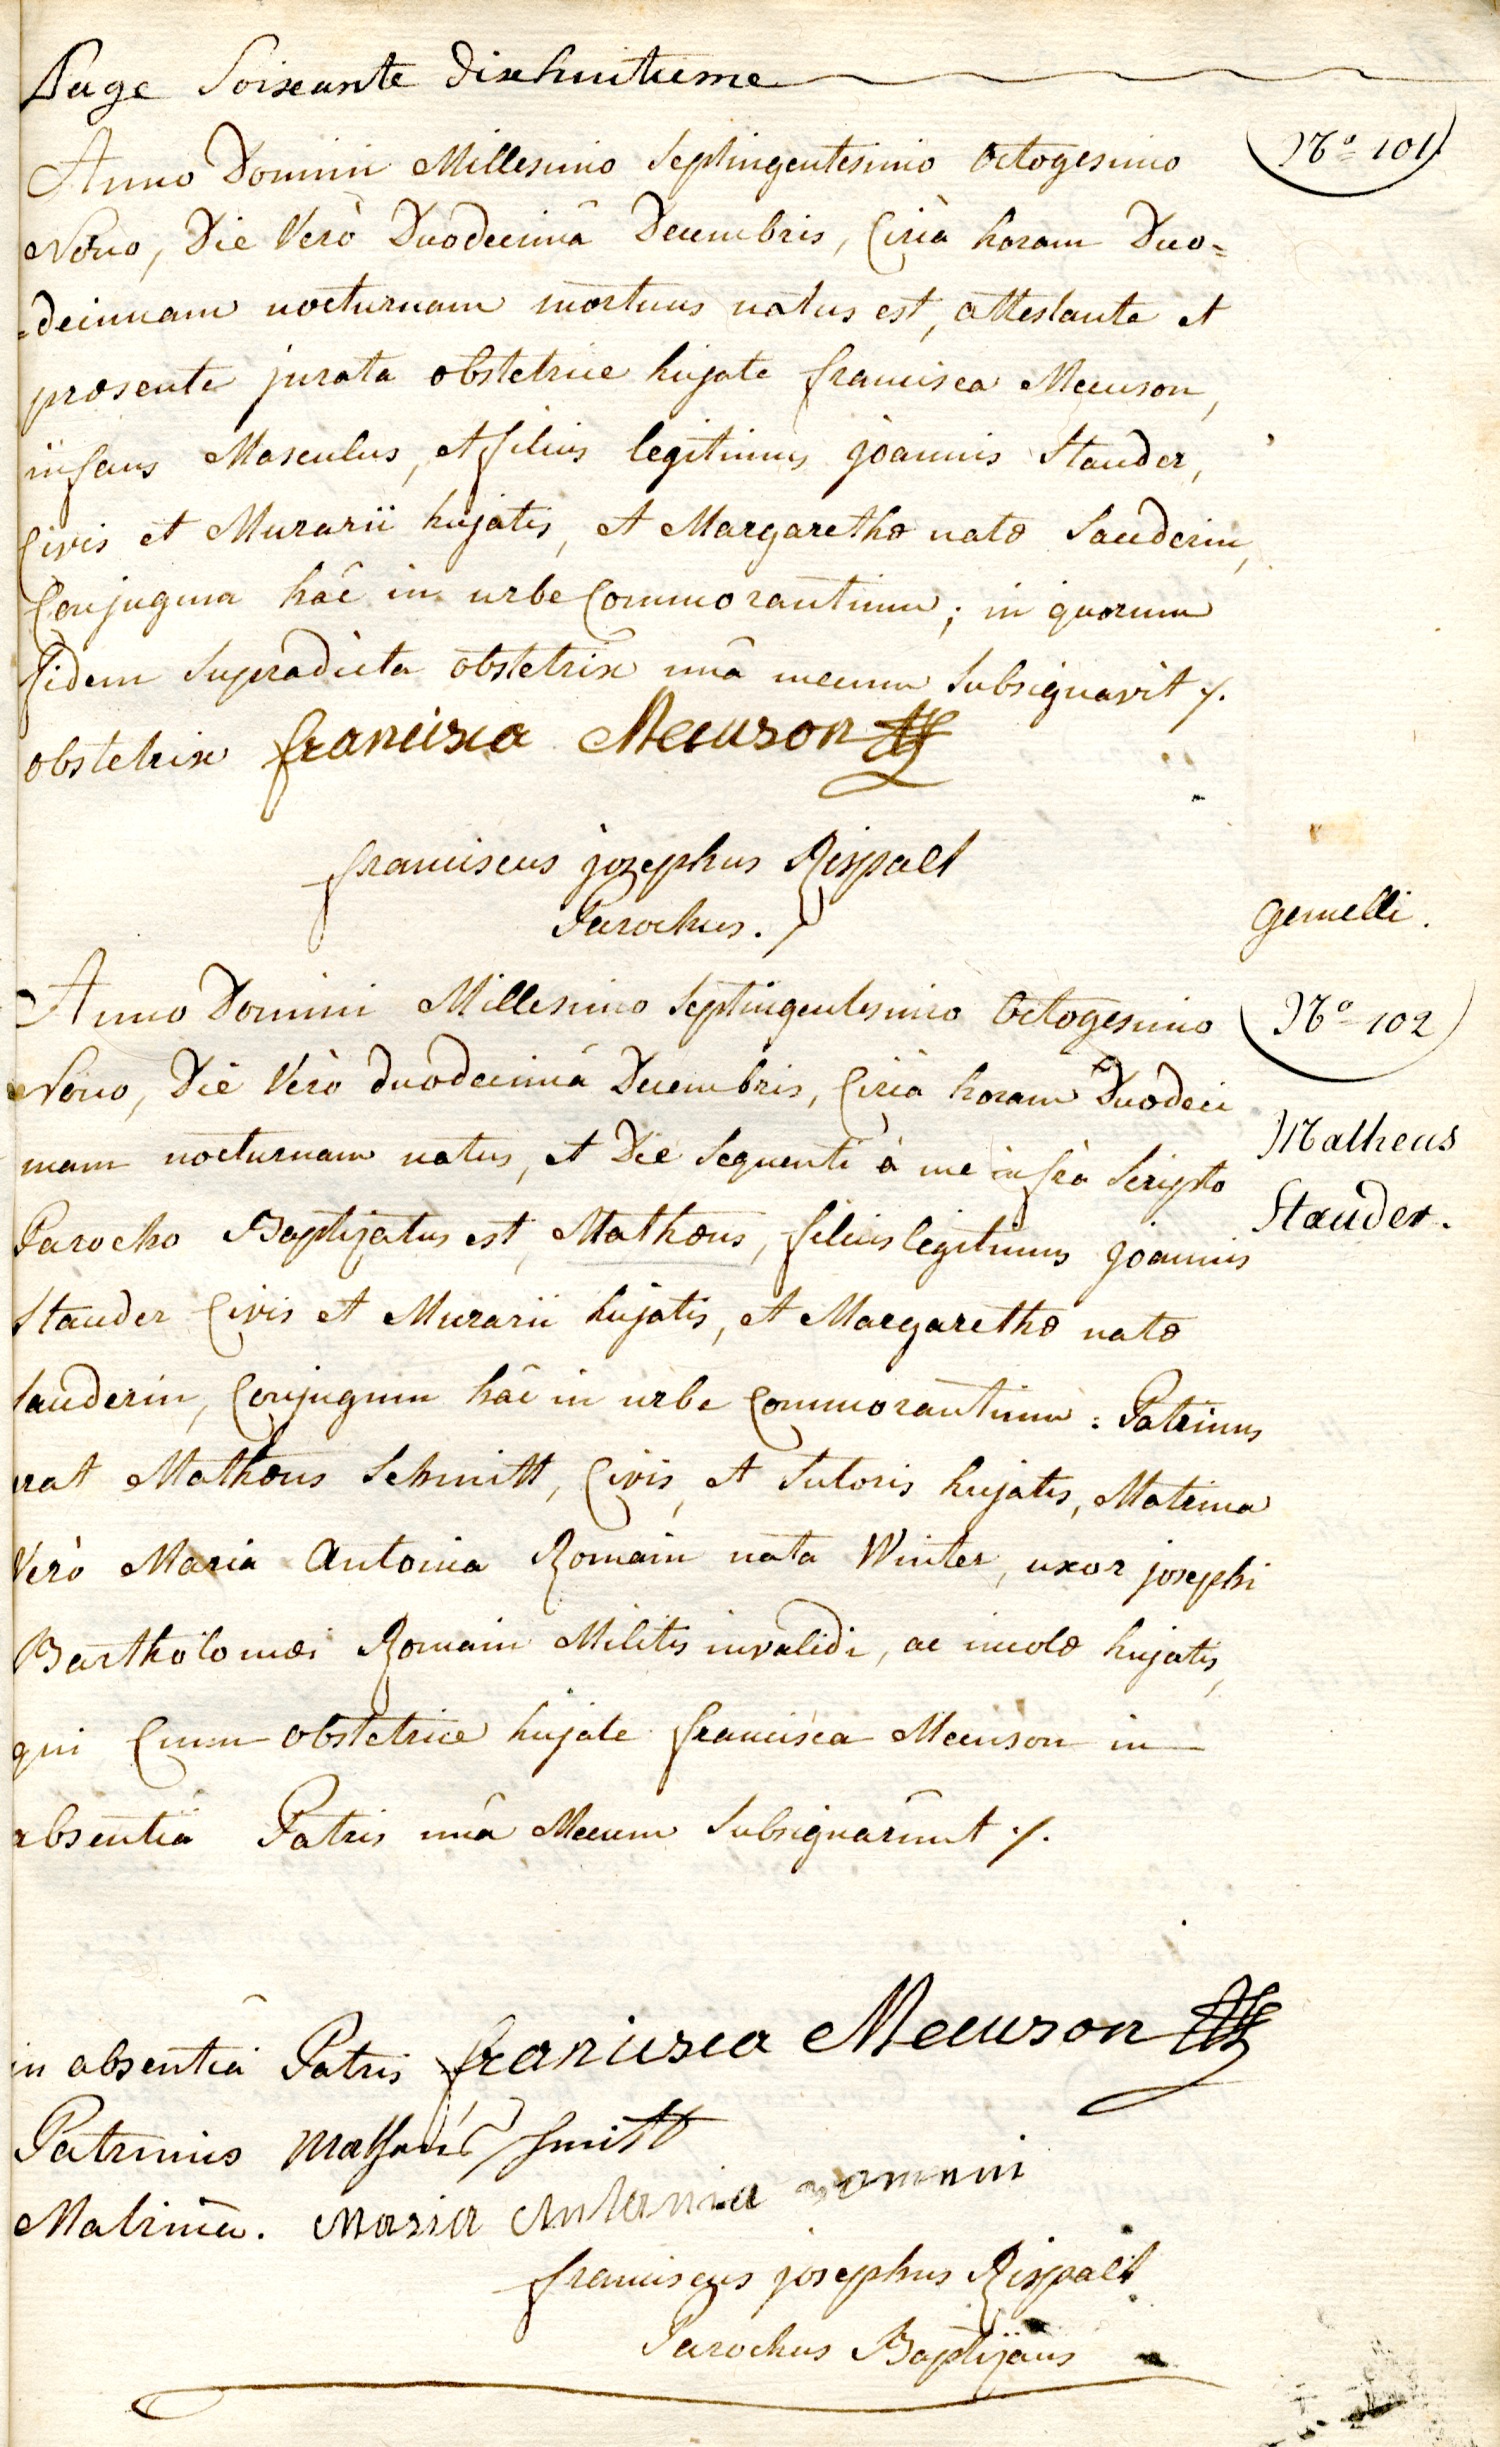 Page Soixante dixhuitieme
Anno Domini Millesimo Septingentesimo Octogesimo
Nº 101
Nono, Die Verò Duodecimâ Decembris, Circà horam Duo=
=decimam nocturnam mortuus natus est, attestante et
præsente jurata obstetrice hujate francisca Meeuson,
infans Masculus, et filius legitimus joannis Stauder,
Civis et Murarii hujatis, et Margarethæ natæ Sauderin,
Conjugum hâc in urbe Commorantium; in quorum
fidem Supradicta obstetrix unâ mecum Subsignavit ./.
obstetrix francisca Meeuson
franciscus josephus Rispalt
Parochus.
gemelli.
Anno Domini Millesimo Septingentesimo Octogesimo
Nº 102
Nono, Die Verò duodecimâ Decembris, Circà horam Duodeci
mam nocturnam natus, et Die Sequenti à me infrà Scripto
Matheus
Parocho Baptizatus est, Mathæus, filius legitimus joannis
Stauder.
Stauder Civis et Murarii hujatis, et Margarethæ natæ
Sauderin, Conjugum hâc in urbe Commorantium: Patrinus
erat Mathæus Schmitt, Civis, et Sutoris hujatis, Matrina
Verò Maria Antonia Romain nata Winter, uxor josephi
Bartholomæi Romain Militis invalidi, ac incolæ hujatis,
qui Cum obstetrice hujate francisca Meeuson in
absentiâ Patris unâ Mecum Subsignarûnt ./.
in absentiâ Patris francisca Meeuson
Patrinus Mathæus Smitt
Matrina. Maria Antonia romain
franciscus josephus Rispalt
Parochus Baptizans